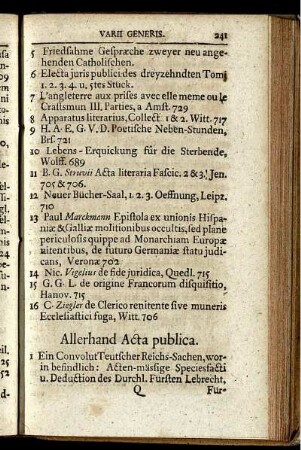 VARII GENERIS. 241
5 Friedsahme Gespræche zweyer neu ange-
henden Catholischen.
6 Electa juris publici des dreyzehndten Tomi
1. 2. 3. 4. u. 5tes Stück.
7 L'angleterre aux prises avec elle meme ou le
Cratismun III. Parties, a Amst. 729
8 Apparatus literarius, Collect. 1 & 2. Witt. 717
9 H. A. E. G. V. D. Poetische Neben-Stunden,
Brs. 721
10 Lebens-Erquickung für die Sterbende,
Wolff. 689
11 B. G. Struvii Acta literaria Fascic. 2 & 3. Jen.
705 & 706.
12 Neuer Bücher-Saal, 1. 2. 3. Oeffnung, Leipz.
710
13 Paul Marckmann Epistola ex unionis Hispa-
niæ & Galliæ molitionibus occultis, sed plane
periculosis quippe ad Monarchiam Europæ
nitentibus, de futuro Germaniæ statu judi-
cans, Veronæ 702
14 Nic. Vigelius de fide juridica, Quedl. 715
15 G. G. L. de origine Francorum disquisitio,
Hanov. 715
16 C. Ziegler de Clerico renitente sive muneris
Ecclesiastici fuga, Witt. 706
Allerhand Acta publica.
1 Ein Convolut Teutscher Reichs-Sachen, wor-
in befindlich: Acten-mässige Species facti
u. Deduction des Durchl. Fürsten Lebrecht,
Q Für-